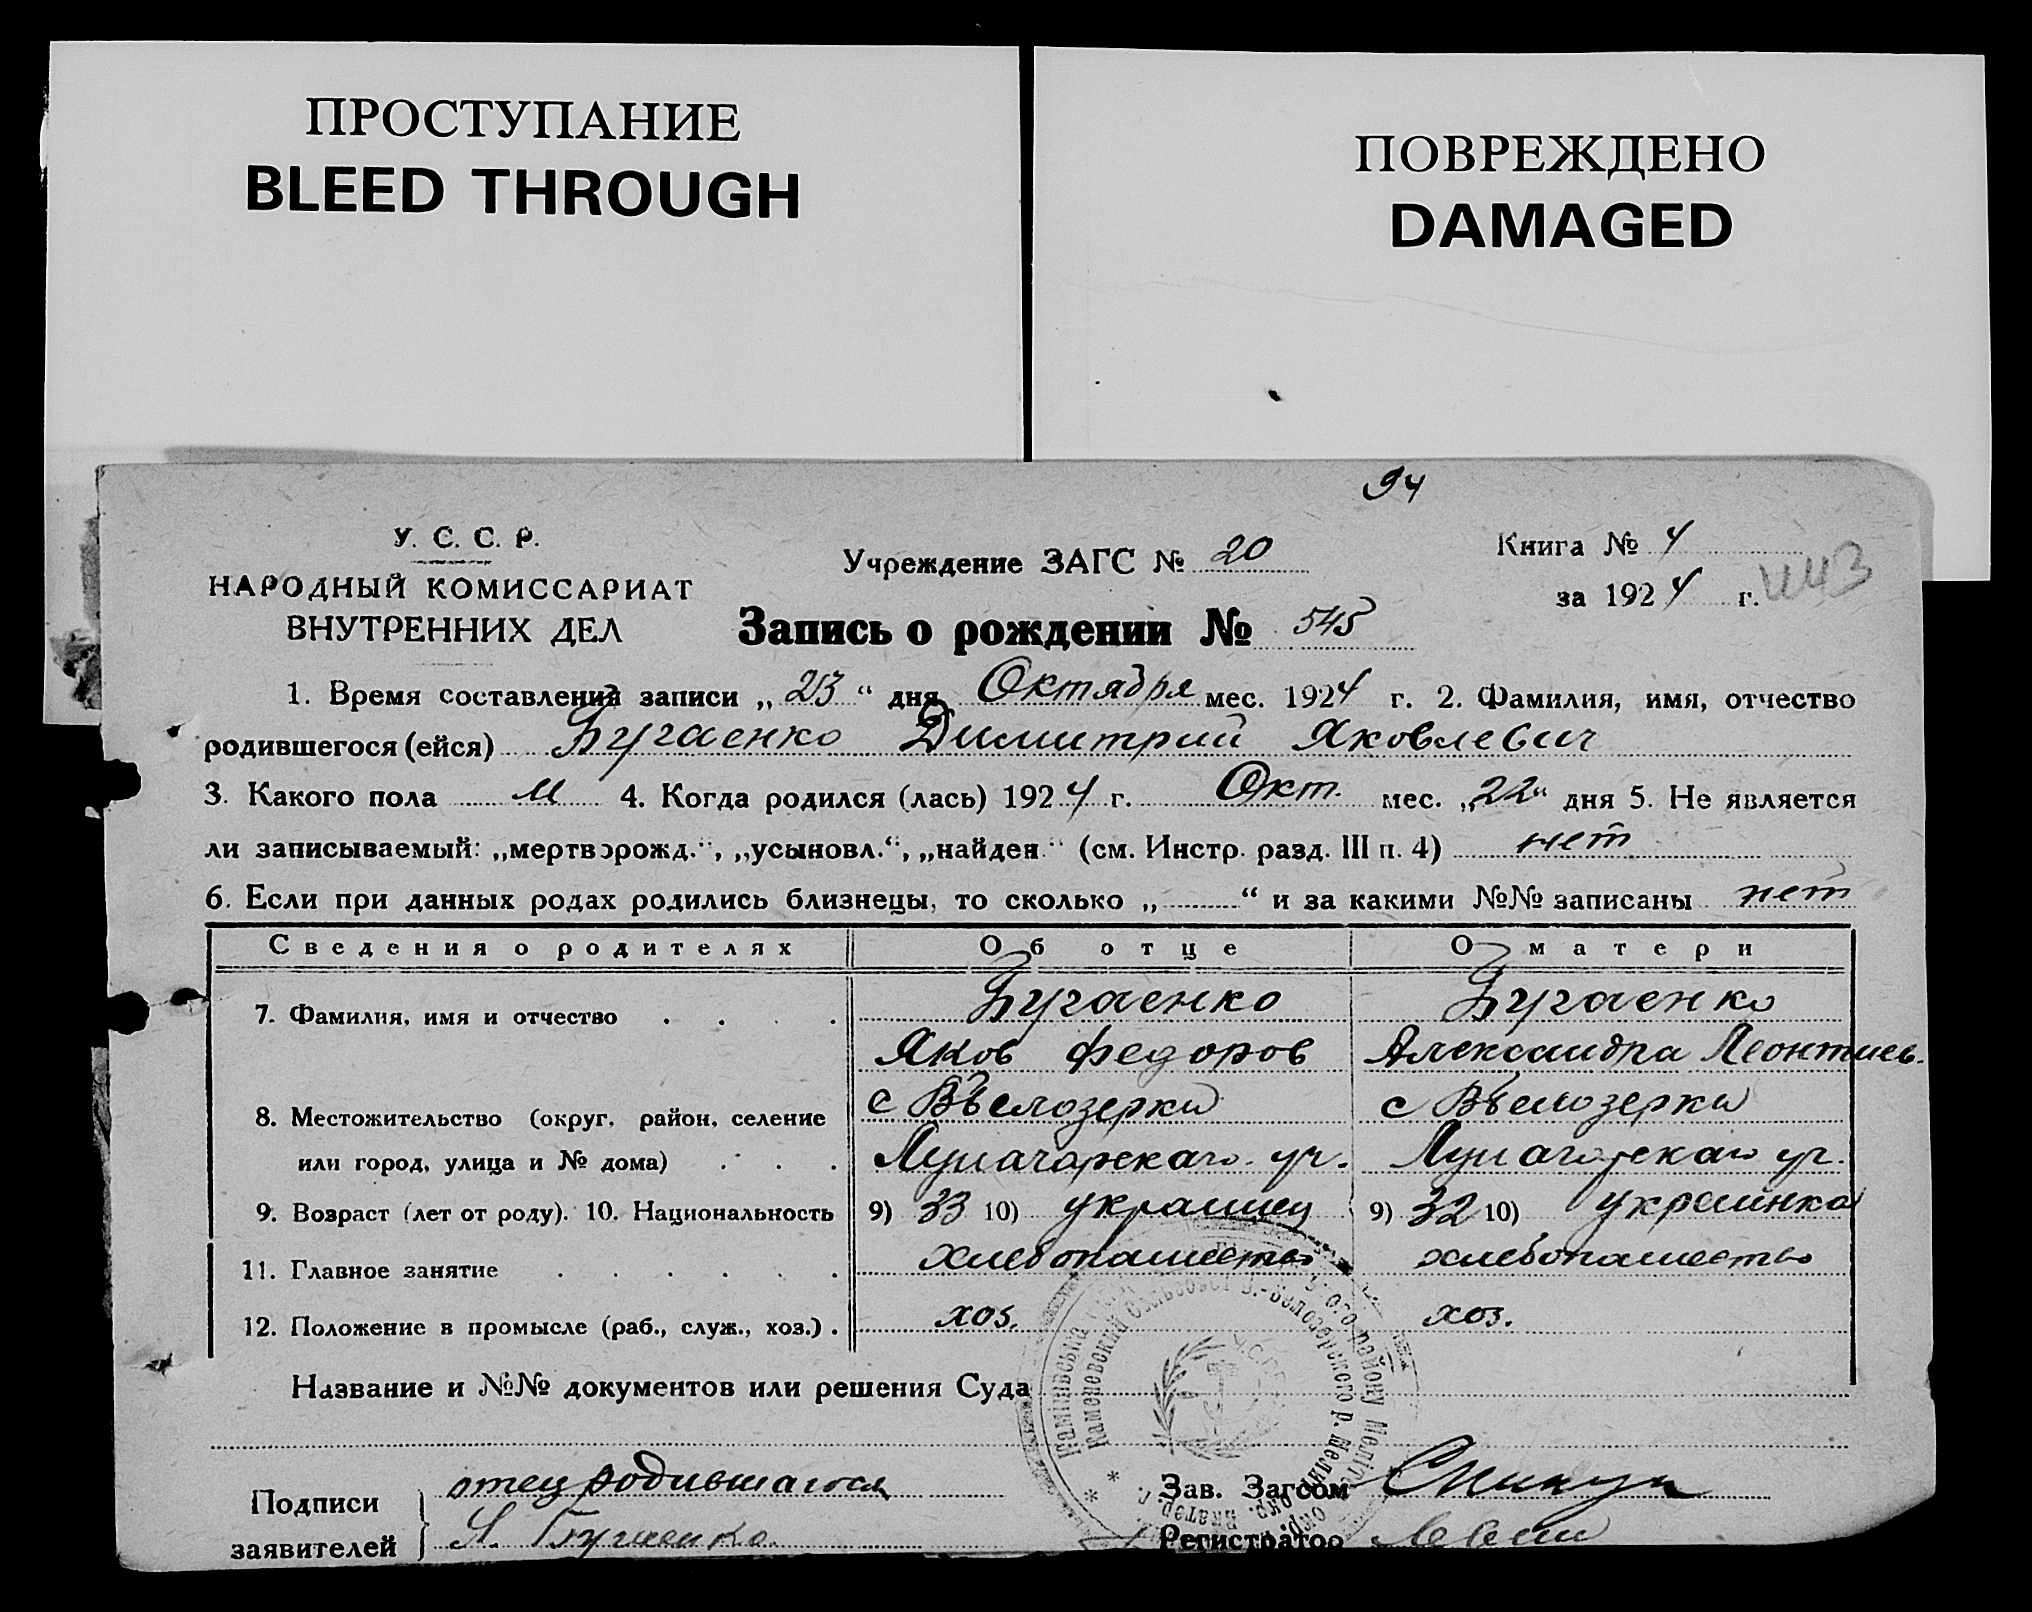 ПРОСТУПАНИЕ
BLEED THROUGH
ПОВРЕЖДЕНО
DAMAGED
94
У. С. С. Р.
НАРОДНЫЙ КОМИССАРИАТ
ВНУТРЕННИХ ДЕЛ
Учреждение ЗАГС № 20
Книга № 4
за 1924 г.
Запись о рождении № 545
1. Время составления записи „23“ дня Октября мес. 1924 г. 2. Фамилия, имя, отчество
родившегося (ейся) Бугаенко Димитрий Яковлевич
3. Какого пола м 4. Когда родился (лась) 1924 г. Окт. мес. „22“ дня 5. Не является
ли записываемый: „мертворожд.“, „усыновл.“, „найден.“ (см. Инстр. разд. III п. 4) нет
6. Если при данных родах родились близнецы, то сколько „ “ и за какими №№ записаны нет
Сведения о родителях Об отце О матери
7. Фамилия, имя и отчество Бугаенко Бугаенко
Яков Федоров Александра Леонтиев.
8. Местожительство (округ, район, селение с Вбелозерки с Вбелозерки
или город, улица и № дома)
9. Возраст (лет от роду). 10. Национальность 9) 33 10) украинец 9) 32 10) украинка
11. Главное занятие хлебопашество хлебопашество
12. Положение в промысле (раб., служ., хоз.) хоз. хоз.
Название и №№ документов или решения Суда
Каменевский Сельсовет В.-Белозерского р. Мелит. окр.
Подписи
заявителей
отец родившагося
Я. Бугаенко
Зав. Загсом
Регистратор